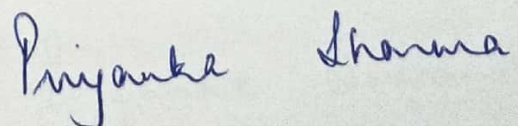 Priyanka Sharma